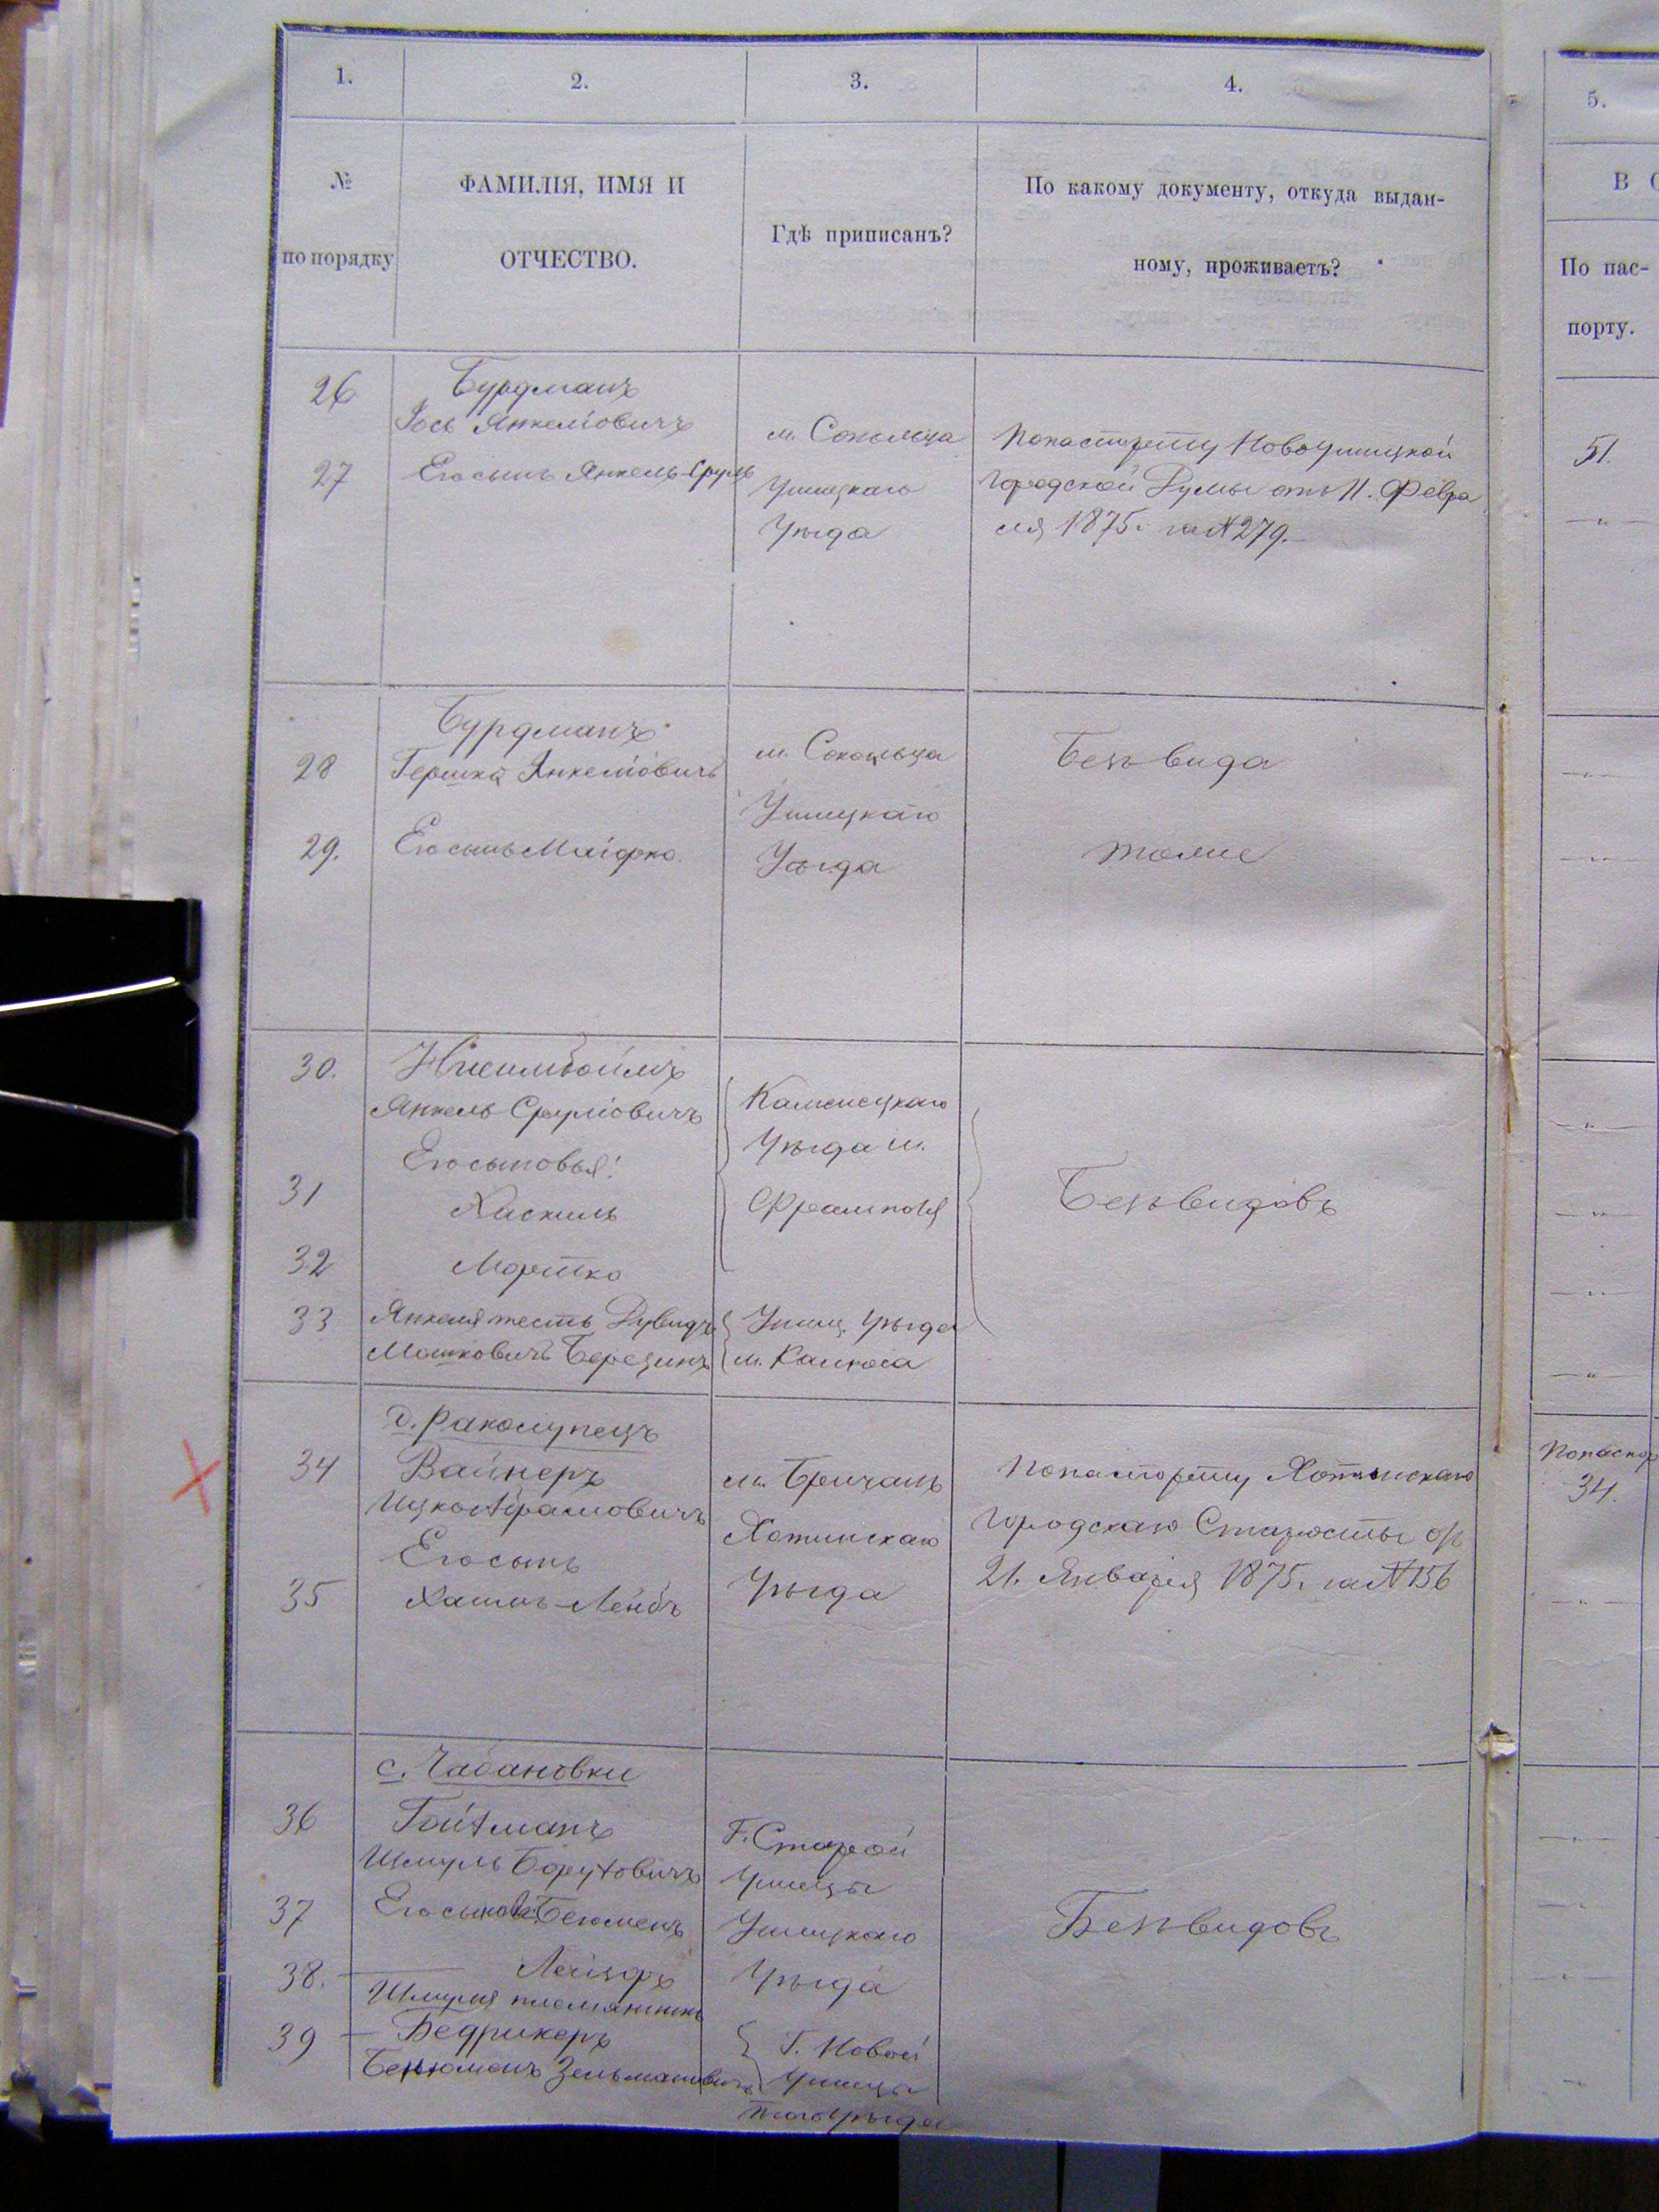 1.
2.
3.
4.
5.
№
по порядку
ФАМИЛІЯ, ИМЯ И
ОТЧЕСТВО.
Гдѣ приписанъ?
По какому документу, откуда выдан-
ному, проживаетъ?
В
По пас-
порту.
26
Бурдманъ
Іось Янкеліовичъ
27
Его сынъ Янкель-Сруль
м. Сокольца
Ушицкаго
Уѣзда
По паспорту Новоушицкой
Городской Думы отъ 11. Февра
ля 1875. за № 279.
51.
— " —
28
Бурдманъ
Гершко Янкеліовичъ
29.
Его сынъ
м. Сокольца
Ушицкаго
Уѣзда
Безъ вида
тоже
— " —
— " —
30.
Янкель Сруліовичъ
Его сыновья:
31
Хаскиль
32
Мортко
33
Янкеля тесть Дувидъ
Мошковичъ Березинъ
Каменецкаго
Уѣзда м.
Фрамполя
Ушиц. Уѣзда
м. Калюса
Безъ видовъ
— " —
— " —
— " —
— " —
д. Раколупецъ
34
Вайнеръ
Ицко Абрамовичъ
Его сынъ
35
Хаимъ-Лейбъ
м. Бричанъ
Хотинскаго
Уѣзда
По паспорту Хотинскаго
Городскаго Старосты отъ
21. Января 1875. за № 156
По паспор
34.
— " —
с. Чабановки
36
Гойхманъ
Шмуль Боруховичъ
37
Его сыновья: Беюменъ
38.
Лейзоръ
Шмуля племянникъ
39
Бедрикеръ
Беньюменъ Зельмановичъ
Г. Старой
Ушицы
Ушицкаго
Уѣзда
Г. Новой
Ушицы
того Уѣзда
Безъ видовъ
— " —
— " —
— " —
— " —